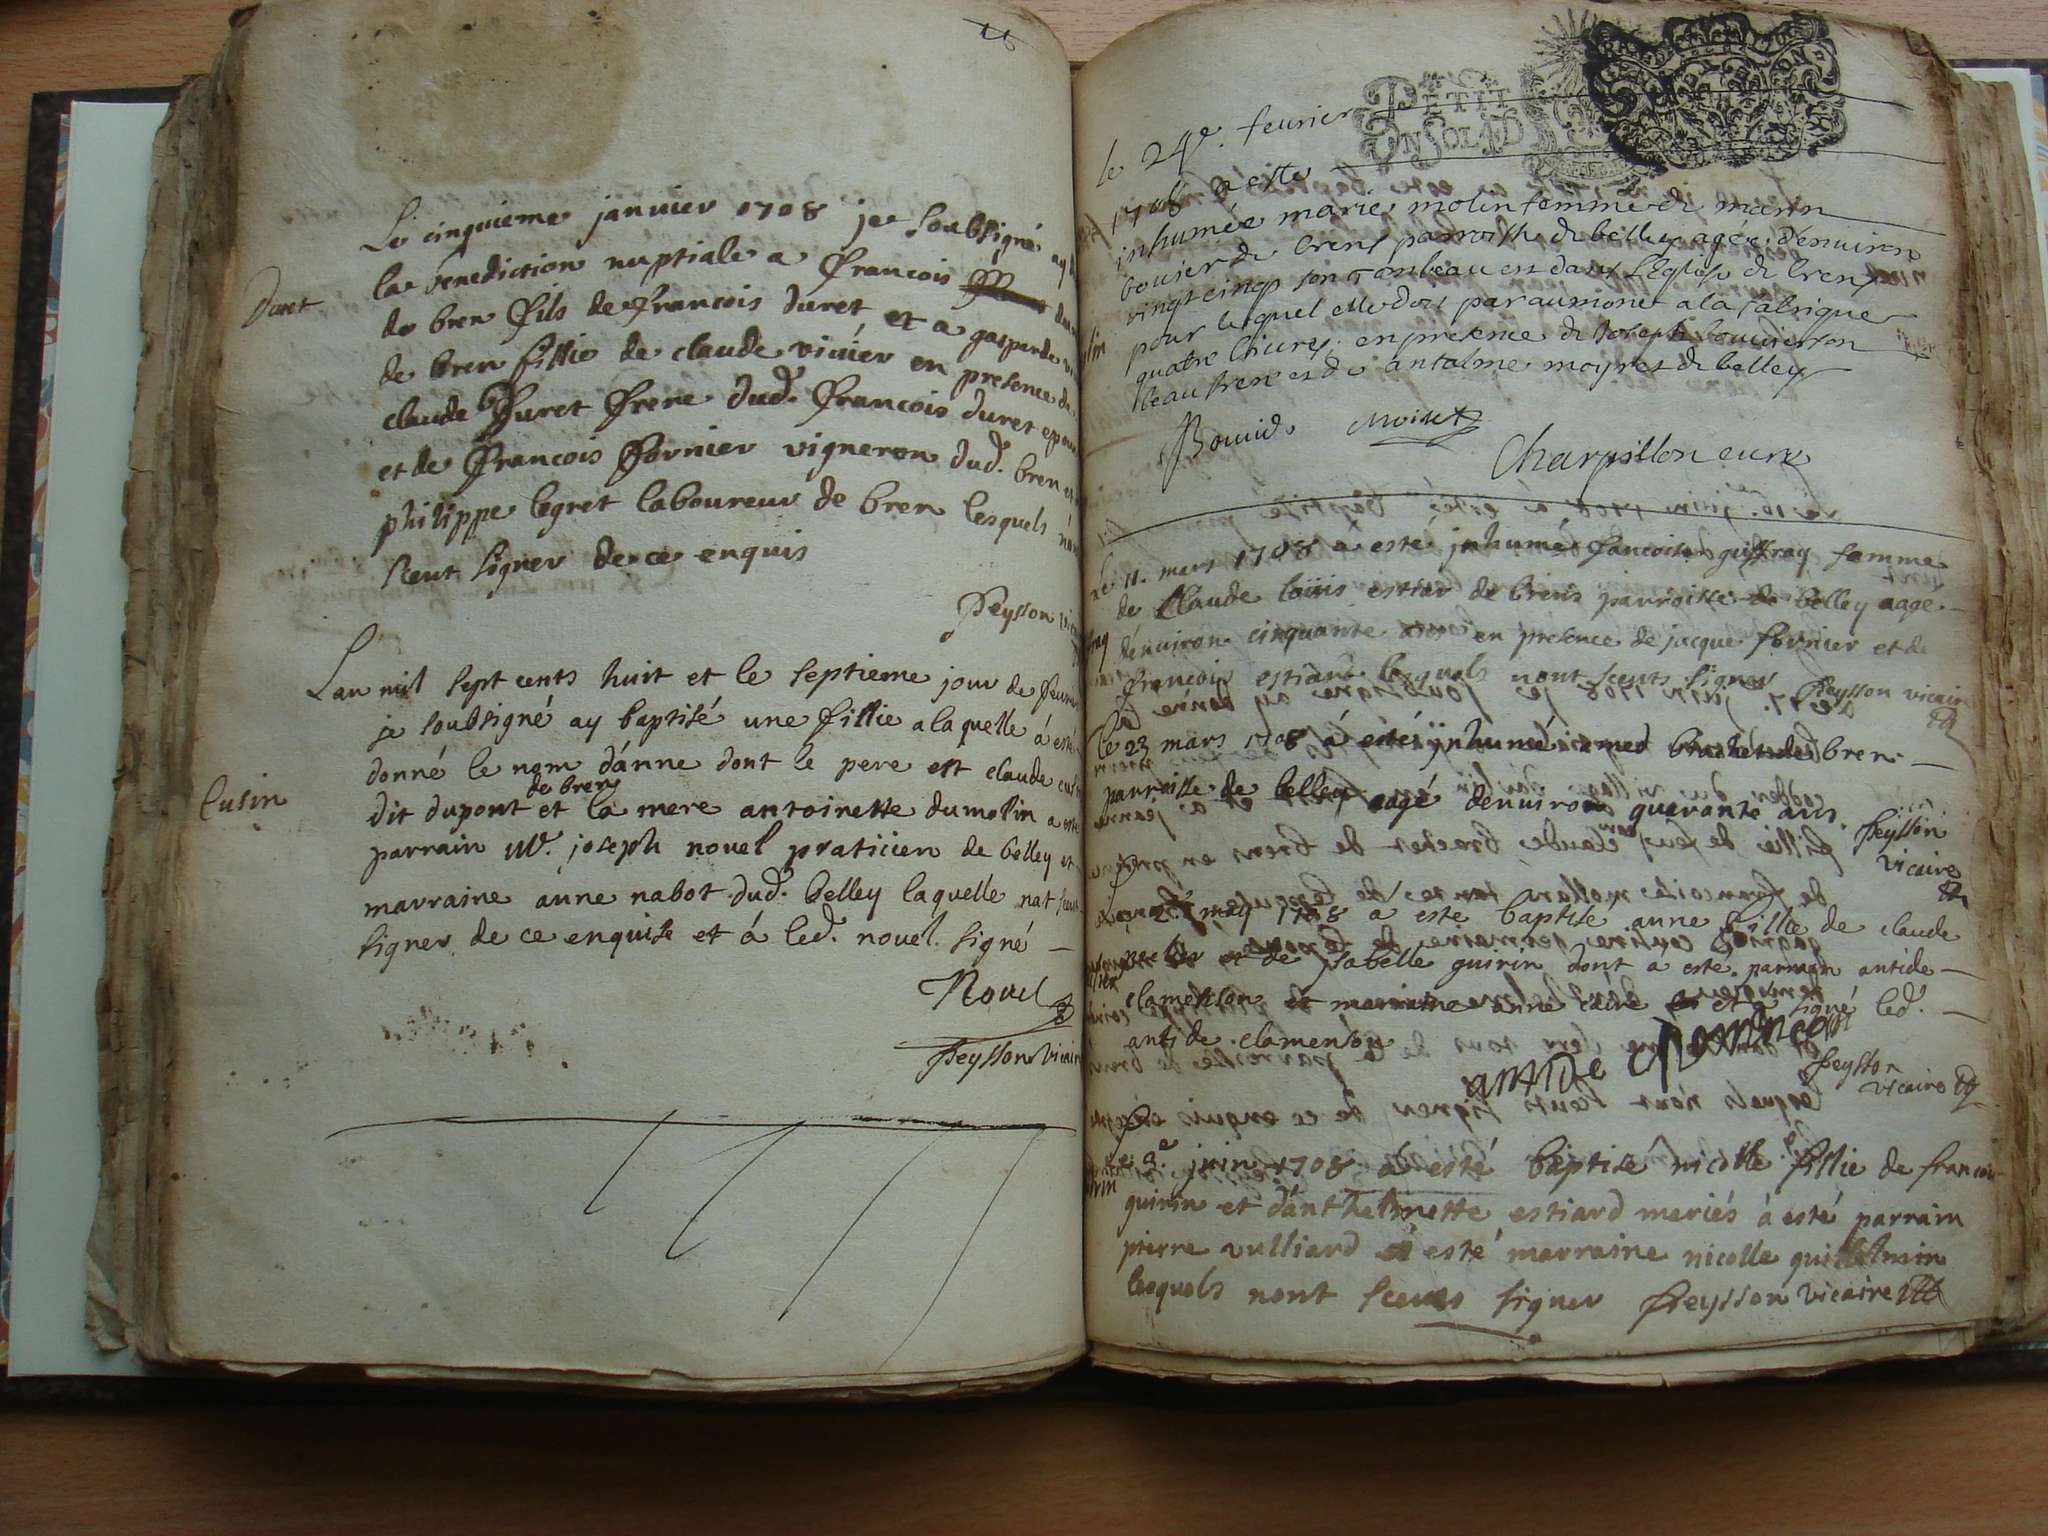 Le cinquieme janvier 1708 je soubsigné ay
la benediction nuptiale a francois
Duret
de bren fils de francois duret et a gasparde
de bren fillie de claude vivier en presence de
claude Duret frere dud. francois duret epoux
et de francois fornier vigneron dud. bren et
philippe legret laboureur de bren lesquels
sceut signer de ce enquis
Peysson
Lan mil sept cents huit et le septieme jour de fevrier
je soubsigné ay baptisé une fillie a laquelle á esté
donné le nom d'anne dont le pere est claude
Cusin
de bren
dit dupont et la mere antoinette dumolin a esté
parrain Mr. joseph novel praticien de belley et
marraine anne nabot dud. belley laquelle nat
signer de ce enquise et á led. novel signé
Novel
Peysson vicaire
le 24e. fevrier
PETIT
UN SOL
1708 a este
inhumée marie molin femme de marin
bovier de brens parroisse de belley agee denviron
vingt cinq son tombeau est dans leglise de brens
pour lequel elle doit par aumone a la fabrique
quatre livres en presence de joseph bovier son
beau frere et de antalme moyret de belley
Bouvid Moiret
Charpillon curé
Le 11. mars 1708 a esté inhumé francoise guiffray femme
de Claude loüis estier de brens parroisse de belley aagé
denviron cinquante ans en presence de jacque fornier et de
francois estiard lesquels nont sceuts signer Peysson vicaire
Le 23 mars 1708 á esté ÿnhumé brachet de bren
parroisse de belley aagé denviron quarante ans. Peysson
vicaire
may 1708 a esté baptisé anne fillie de claude
et de ysabelle guirin dont á esté parrain antide
clamenson et marraine anne et a signé led.
antide clamenson
antide
Peysson
vicaire
Le 3e. juin 1708 á esté baptisé nicolle fillie de francois
guirin et d'anthelmette estiard meriés á esté parrain
pierre vulliard á esté marraine nicolle
lesquels nont sceuts signer Peysson vicaire